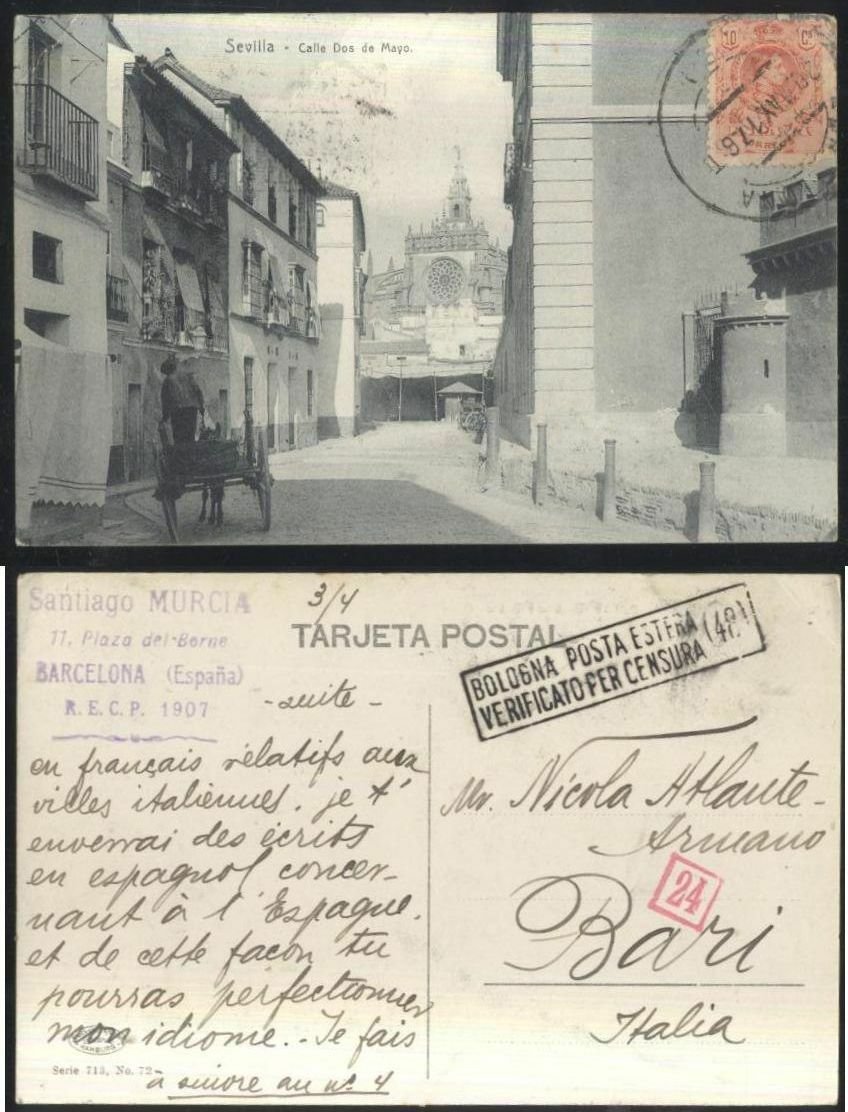 Sevilla - Calle Dos de Mayo.
10 Cs
Santiago MURCIA
11, Plaza del Borne
BARCELONA (España)
R. E. C. P. 1907
3/4
TARJETA POSTAL
BOLOGNA POSTA ESTERA (48)
VERIFICATO PER CENSURA
- suite -
en français rélatifs aux
villes italiennes. je t'
enverrai des écrits
en espagnol concer-
nant à l'Espagne.
et de cette façon tu
pourras perfectionner
mon idiome. - Je fais
à suivre au nº 4
Mr. Nicola Atlante-
Armano
24
Bari
Italia
HAMBURG
Serie 713, No. 72